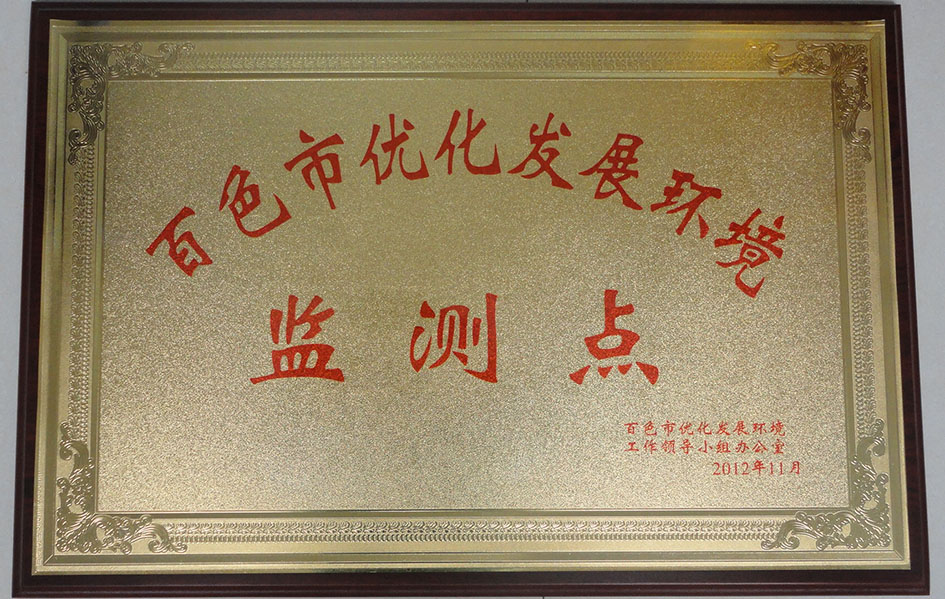 百色市优化发展环境
监测点
百色市优化发展环境
工作领导小组办公室
2012年11月